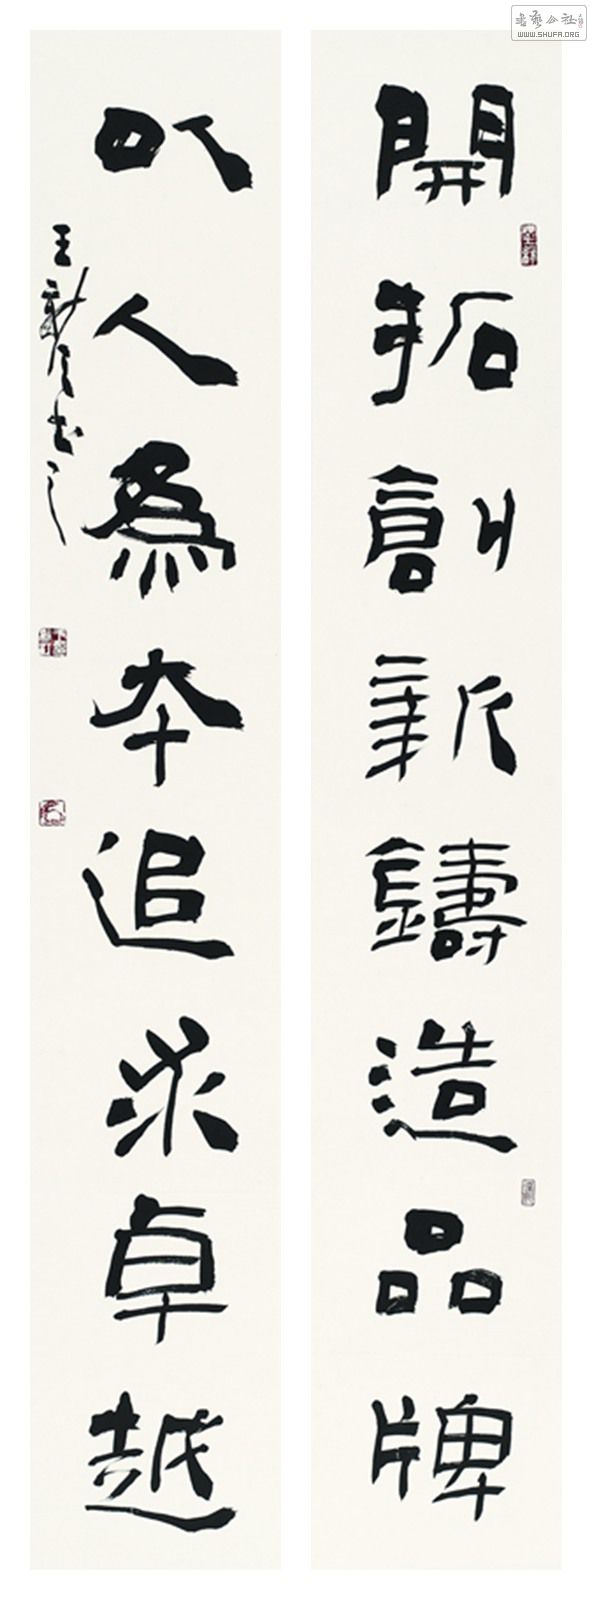 開拓創新鑄造品牌
以人為本追求卓越
王新良書之
書藝公社
WWW.SHUFA.ORG